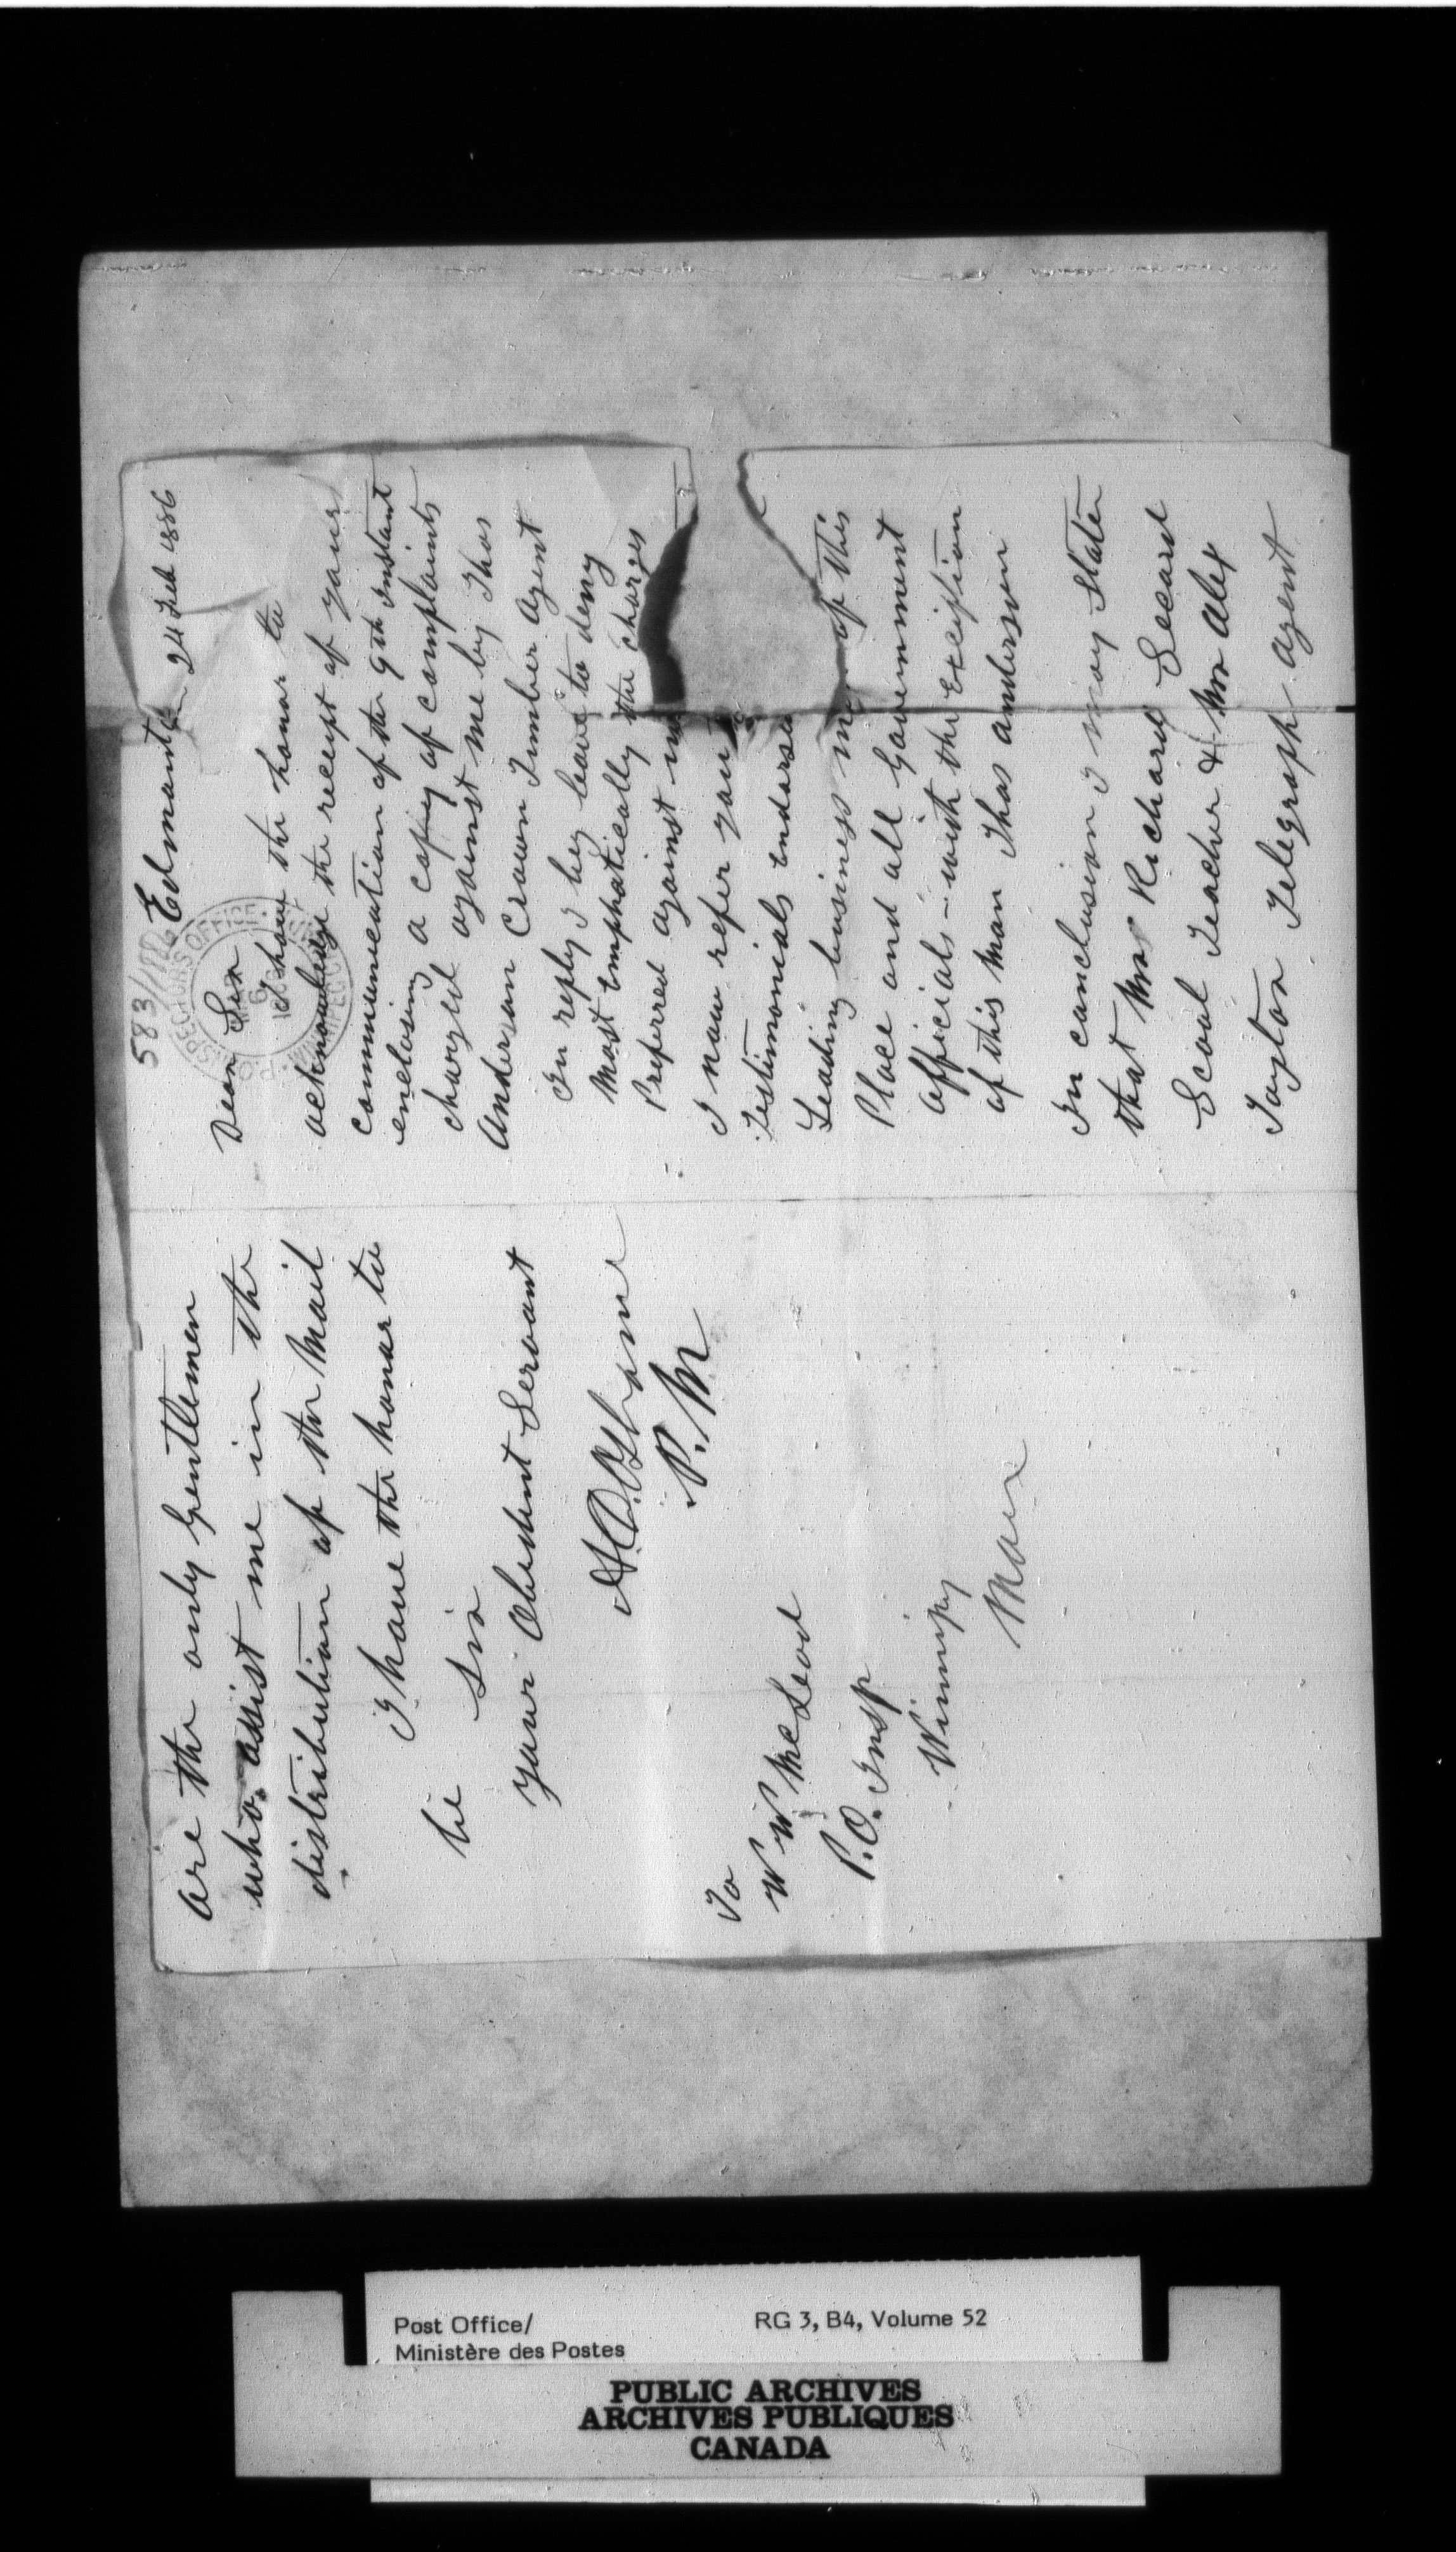 583/1886
P.O. INSPECTORS OFFICE
MAR
6
1886
WINNIPEG
Edmonton 24 Feb 1886
Dear Sir
I have the honor to
acknowledge the recept of your
communication of the 9th instant
enclosing a copy of complaints
charged against me by Thos
Anderson Crown Timber Agent
In reply I beg leave to deny
Most Emphatically the charges
Preferred against
I now refer you
Testimonials Endorsed
Leading business of this
Place and all Government
officials - with the Exception
of this Man Thos Anderson
In conclusion I may State
that Mr Richard Secard
Scool Teacher & Mr Alex
Taylor Telegraph Agent
are the only Gentlemen
who assist me in the
distribution of the Mail
I have the honor to
be Sir
your Obedent Servant
A.D. Osborne
P.M
To
W W McLeod
P.O. Insp
Winnipeg
Man
Post Office/
Ministère des Postes
RG 3, B4, Volume 52
PUBLIC ARCHIVES
ARCHIVES PUBLIQUES
CANADA